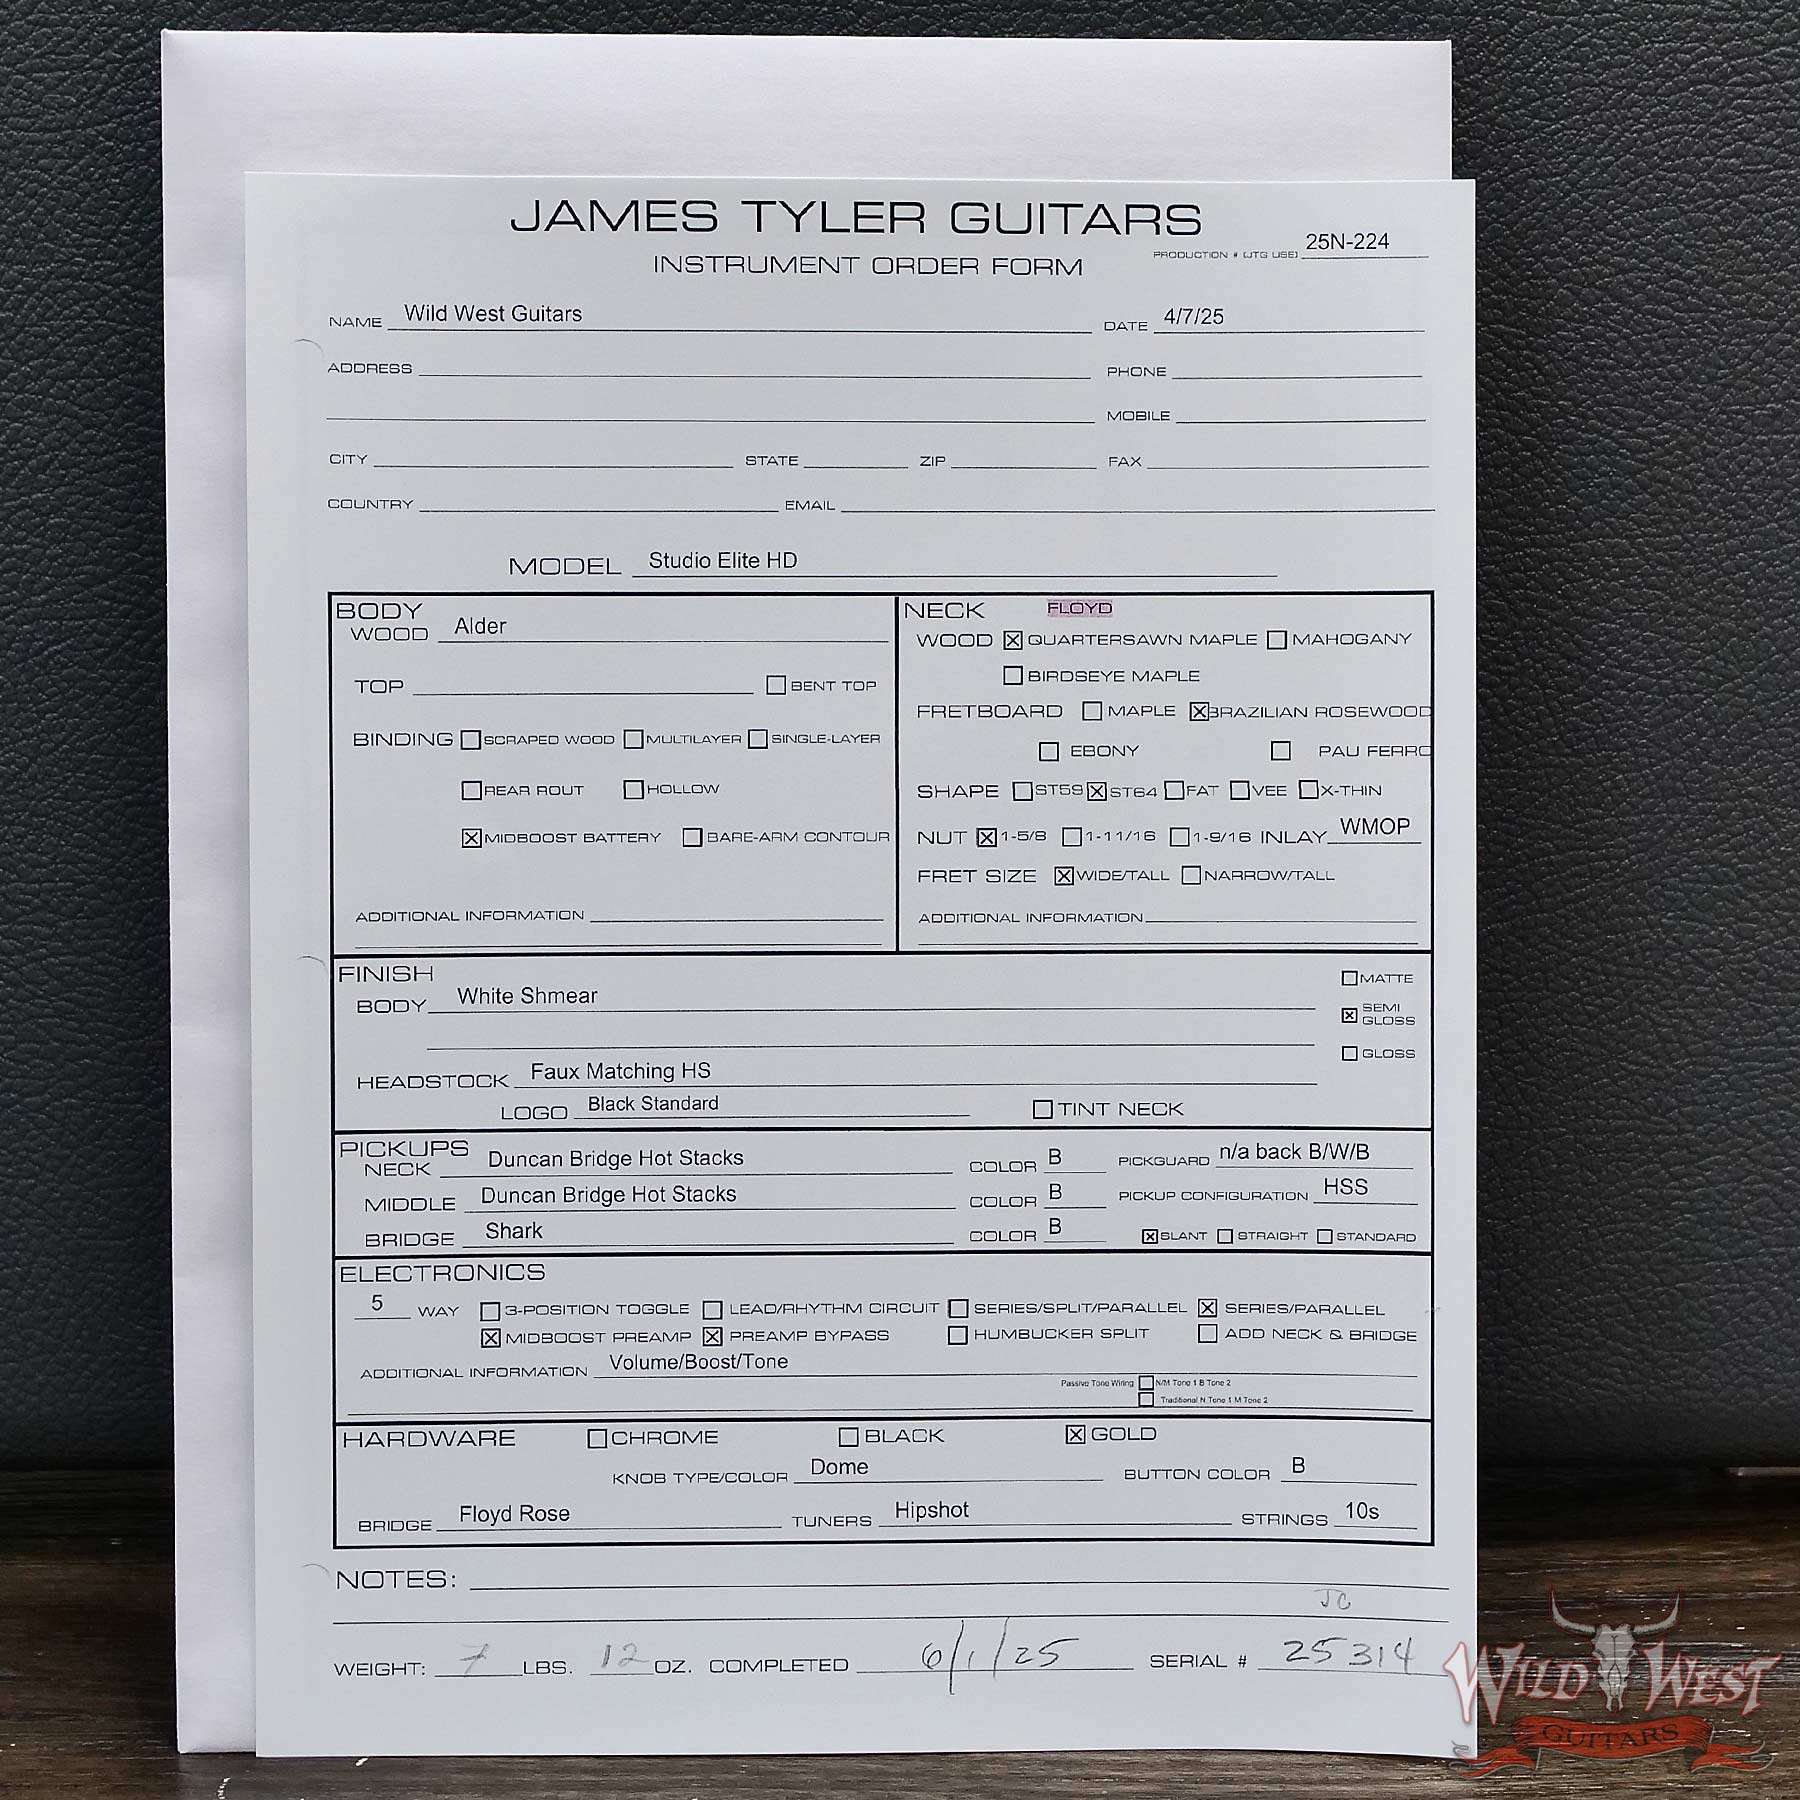 JAMES TYLER GUITARS
INSTRUMENT ORDER FORM
PRODUCTION # (JTG USE) 25N-224
NAME Wild West Guitars DATE 4/7/25
ADDRESS PHONE
MOBILE
CITY STATE ZIP FAX
COUNTRY EMAIL
MODEL Studio Elite HD
BODY
WOOD Alder
TOP BENT TOP
BINDING SCRAPED WOOD MULTILAYER SINGLE-LAYER
REAR ROUT HOLLOW
X MIDBOOST BATTERY BARE-ARM CONTOUR
ADDITIONAL INFORMATION
NECK FLOYD
WOOD X QUARTERSAWN MAPLE MAHOGANY
BIRDSEYE MAPLE
FRETBOARD MAPLE X BRAZILIAN ROSEWOOD
EBONY PAU FERRO
SHAPE ST59 X ST64 FAT VEE X-THIN
NUT X 1-5/8 1-11/16 1-9/16 INLAY WMOP
FRET SIZE X WIDE/TALL NARROW/TALL
ADDITIONAL INFORMATION
FINISH
BODY White Shmear
MATTE
X SEMI GLOSS
GLOSS
HEADSTOCK Faux Matching HS
LOGO Black Standard TINT NECK
PICKUPS
NECK Duncan Bridge Hot Stacks COLOR B PICKGUARD n/a back B/W/B
MIDDLE Duncan Bridge Hot Stacks COLOR B PICKUP CONFIGURATION HSS
BRIDGE Shark COLOR B X SLANT STRAIGHT STANDARD
ELECTRONICS
5 WAY 3-POSITION TOGGLE LEAD/RHYTHM CIRCUIT SERIES/SPLIT/PARALLEL X SERIES/PARALLEL
X MIDBOOST PREAMP X PREAMP BYPASS HUMBUCKER SPLIT ADD NECK & BRIDGE
ADDITIONAL INFORMATION Volume/Boost/Tone
Passive Tone Wiring N/M Tone 1 B Tone 2
Traditional N Tone 1 M Tone 2
HARDWARE CHROME BLACK X GOLD
KNOB TYPE/COLOR Dome BUTTON COLOR B
BRIDGE Floyd Rose TUNERS Hipshot STRINGS 10s
NOTES:
JC
WEIGHT: 7 LBS. 12 OZ. COMPLETED 6/1/25 SERIAL # 25314
WILD WEST
GUITARS